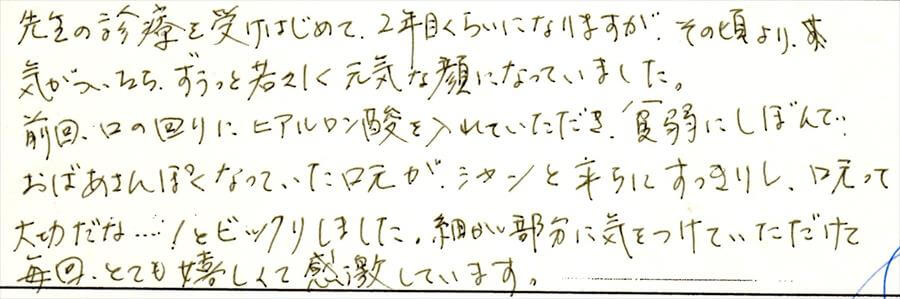 先生の診療を受けはじめて、2年目くらいになりますが、その頃より、
気がついたら、ずうっと若々しく元気な顔になっていました。
前回、口の回りにヒアルロン酸を入れていただき、貧弱にしぼんで、
おばあさんぽくなっていた口元が、シャンと平らにすっきりし、口元って
大切だな…!とビックリしました。細かい部分に気をつけていただけて
毎回、とても嬉しくて感激しています。